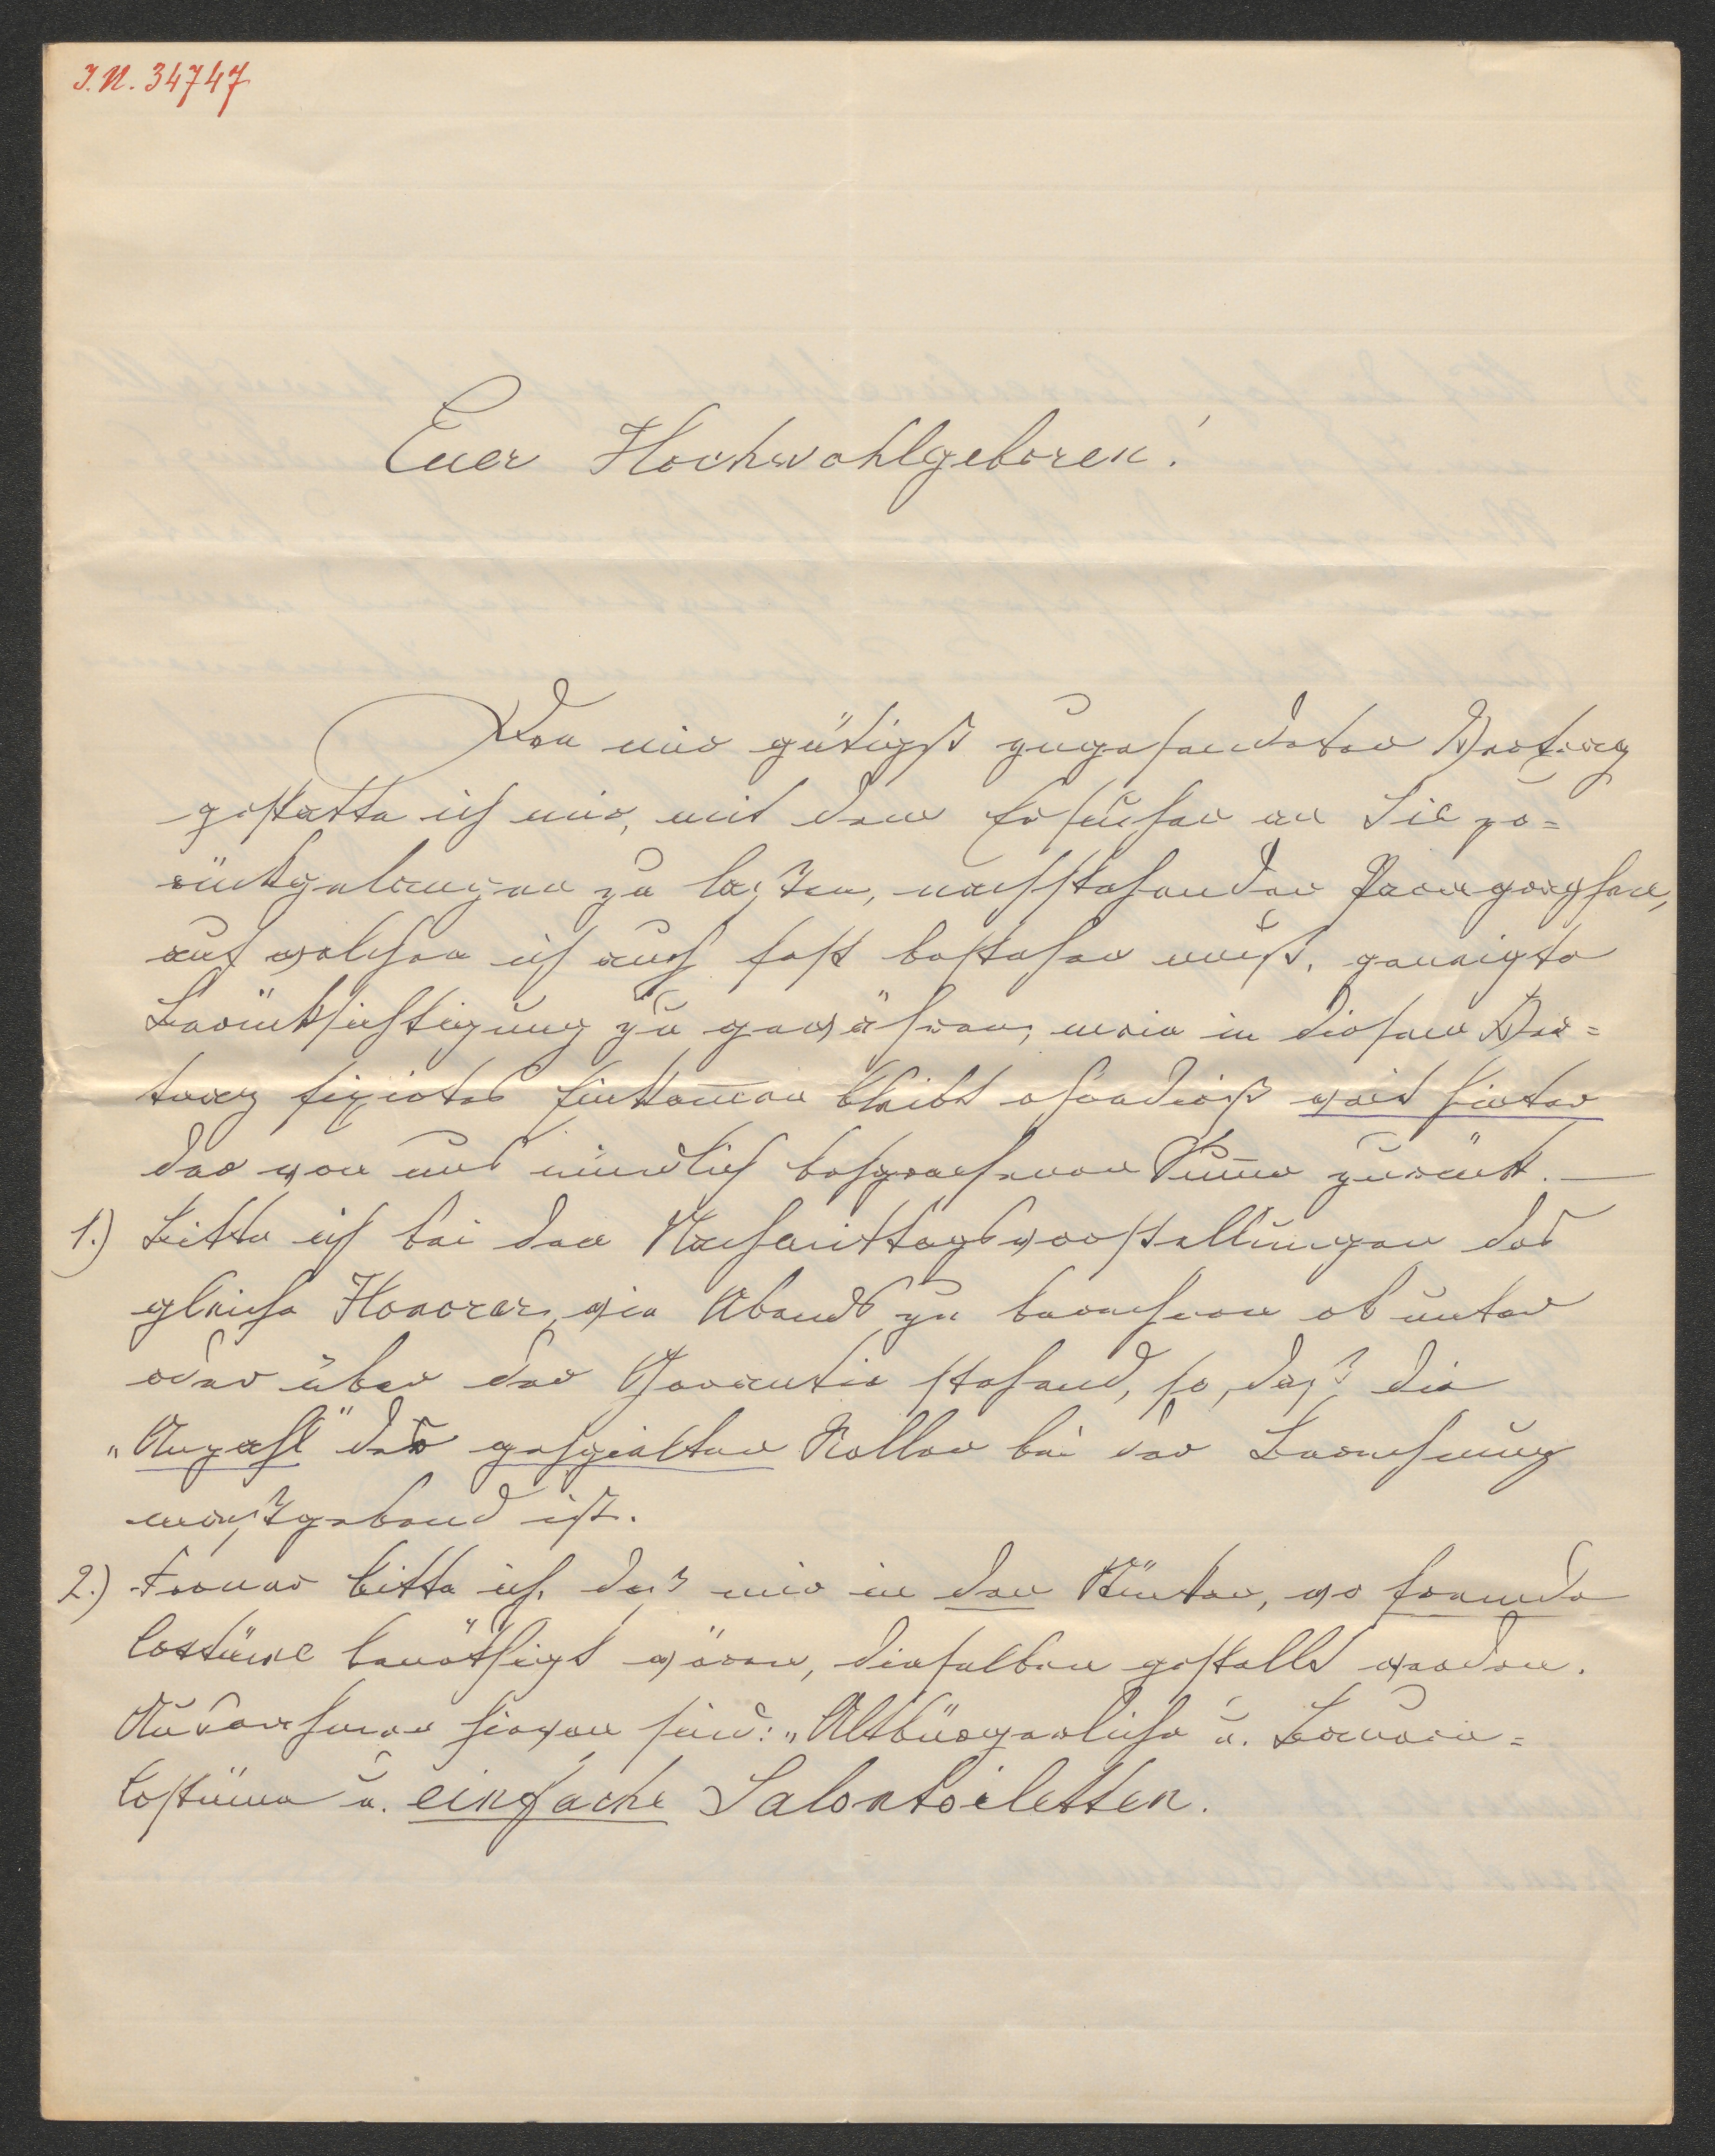 I.N. 34747
Euer Hochwohlgeboren!
Den mir gütigst zugesendeten Vertrag
gestatte ich mir, mit dem Ersuchen an Sie zu=
rückgelangen zu laßen, nachstehenden Paragraphen,
auf welchen ich auch fest bestehen muß, geneigte
Berücksichtigung zu gewähren, mein in diesem Ver=
trag fixirtes Einkom̅en bleibt ohnedieß weit hinter
der von uns mündlich besprochenen Sum̅e zurück. —
1.) Bitte ich bei den Nachmittagsvorstellungen das
gleiche Honorar, wie Abends zu berechnen ob unter
oder über der Garantie stehend, so, daß die
„Anzahl" der gespielten Rollen bei der Berechnung
maßgebend ist.
2.) Ferner bitte ich, daß mir in den Stücken, wo fremde
Costüme benöthigt wären, dieselben gestellt werden.
Ausnahmen hievon sind: „Altbürgerliche u. Bauern=
Costüme u. einfache Salontoiletten.